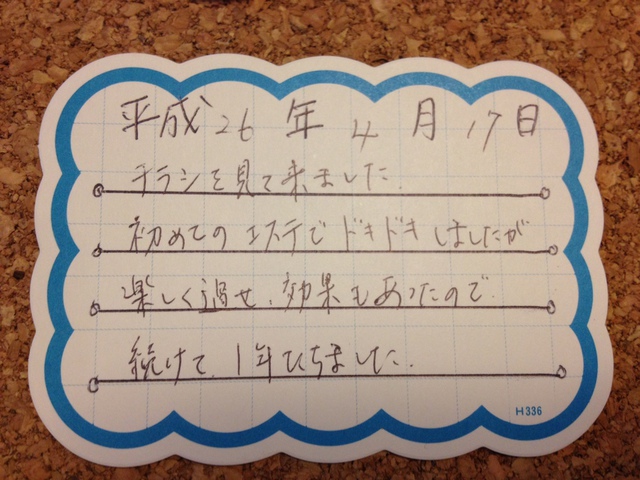 平成26年4月17日
チラシを見て来ました.
初めてのエステでドキドキしましたが
楽しく過せ、効果もあったので
続けて、1年たちました.
H336